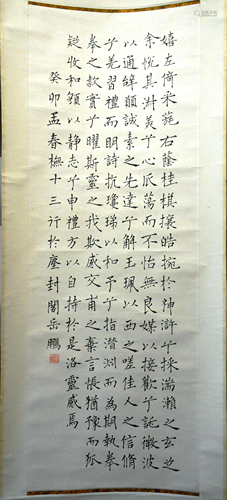 嬉左倚采旄右蔭桂旗攘皓捥於神滸兮採湍瀨之玄芝
余悅其淑美兮心振蕩而不怡無良媒以接歡兮託微波
以通辭願誠素之先達兮解玉珮以要之嗟佳人之信脩
兮羌習禮而明詩抗瓊珶以和予兮指潛淵而為期執拳
拳之款實兮懼斯靈之我欺感交甫之棄言悵猶豫而狐
疑收和顏以靜志兮申禮防以自持於是洛靈感焉
癸卯孟春橅十三行於塵封閣岳鵬